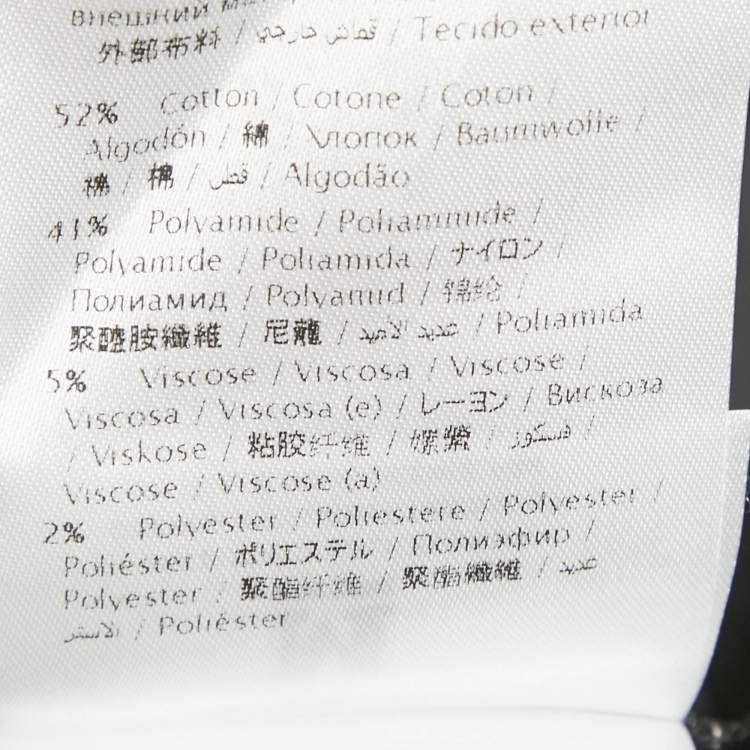 внешний
外部布料 / قماش خارجي / Tecido exterior
52% Cotton / Cotone / Coton /
Algodón / 綿 / Хлопок / Baumwolle /
棉 / 棉 / قطن / Algodão
41% Polyamide / Poliammide /
Polyamide / Poliamida / ナイロン /
Полиамид / Polyamid / 锦纶 /
聚醯胺纖維 / 尼龍 / عديد الأميد / Poliamida
5% Viscose / Viscosa / Viscose /
Viscosa / Viscosa (e) / レーヨン / Вискоза
/ Viskose / 粘胶纤维 / 嫘縈 / فسكوز /
Viscose / Viscose (a)
2% Polyester / Poliestere / Polyester /
Poliéster / ポリエステル / Полиэфир /
Polyester / 聚酯纤维 / 聚酯纖維 / عديد
الاستر / Poliéster